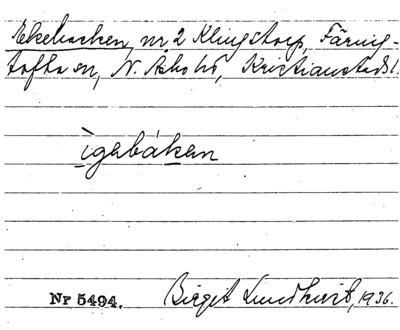 Ekebacken nr 2 Klingstorp, Färing-
tofta sn, N. Åsbo hd, Kristianstads l.
ìgabákan
Nr 5494. Birgit Lundkvist, 1936.